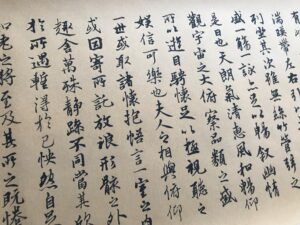 湍暎帶左右引
列坐其次雖無絲竹管弦之
盛一觴一詠亦足以暢敘幽情
是日也天朗氣清惠風和暢仰
觀宇宙之大俯察品類之盛
所以遊目騁懷足以極視聽之
娛信可樂也夫人之相與俯仰
一世或取諸懷抱悟言一室之內
或因寄所託放浪形骸之外
趣舍萬殊靜躁不同當其欣
於所遇暫得於己怏然自足
知老之將至及其所之既惓